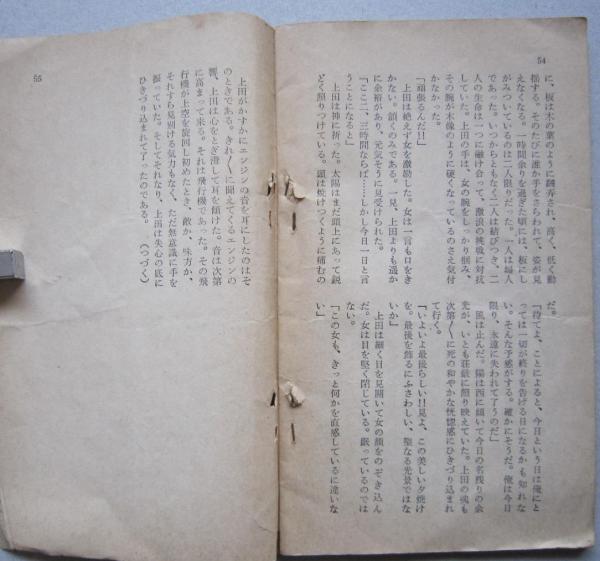 54
に、板は木の葉のように翻弄され、高く、低く動
揺する。そのたびに誰か手をさらわれて、姿が見
えなくなる。一時間余りを過ぎた頃には、板にし
がみついているのは二人限りだった。一人は婦人
であった。いつからともなく二人は結びつき、二
人の生命は一つに融け合って、激浪の挑戦に対抗
していた。上田の手は、女の腕をしっかり掴み、
その腕が木像のように硬くなっているのさえ気付
かなかった。
「頑張るんだ!」
上田は絶えず女を激励した。女は一言も口をき
かない。頷くのみである。一見、上田よりも遥か
に余裕があり、元気そうに見受けられた。
「ここ二、三時間ならば……しかし今日一日と言
うことになると」
上田は神に祈った。太陽はまだ頭上にあって鋭
どく照りつけている。頭は焼けつくように痛むの
だ。
「待てよ、ことによると、今日という日は俺にと
っては一切が終りを告げる日になるかも知れな
い。そんな予感がする。確かにそうだ。俺は今日
限り、永遠に失われて了うのだ」
風は止んだ。陽は西に傾いて今日の名残りの余
光が、いとも荘厳に照り映えていた。上田の魂も
次第〱に死の和やかな恍惚感にひきづり込まれ
て行く。
「いよいよ最後らしい!!見よ、この美しい夕焼け
を。最後を飾るにふさわしい、聖なる光景ではな
いか」
上田は細く目を見開いて女の顔をのぞき込ん
だ。女は目を堅く閉じている。眠っているのでは
ない。
「この女も、きっと何かを直感しているに違いな
い」
55
上田がかすかにエンジンの音を耳にしたのはそ
のときである。きれ〲に聞えてくるエンジンの
響、上田は心をとぎ澄して耳を傾けた。音は次第
に高まって来る。それは飛行機であった。その飛
行機が上空を旋回し初めたとき、敵か、味方か、
それすら見別ける気力もなく、ただ無意識に手を
振っていた。そしてそれなり、上田は失心の底に
ひきづり込まれて了ったのである。 (つづく)